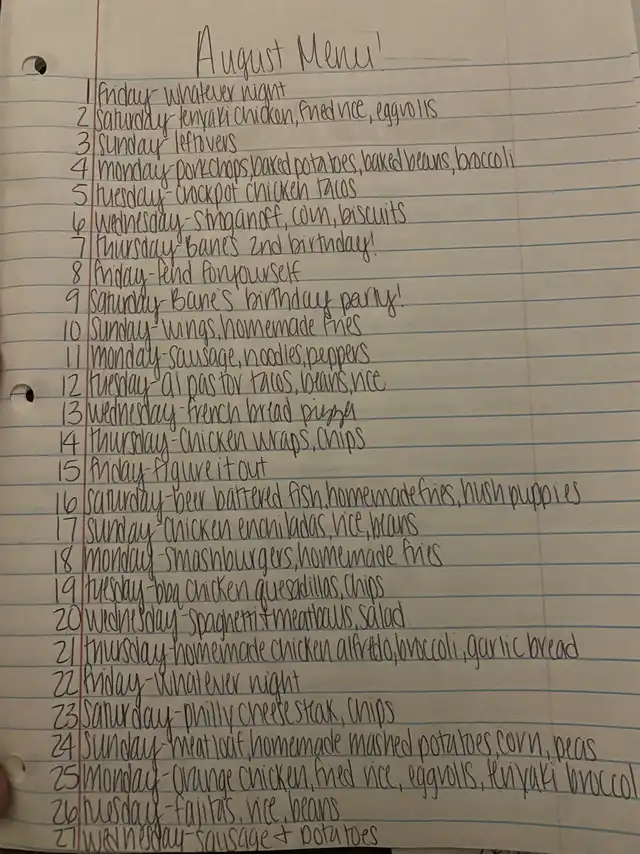 August Menu!
1 friday-whatever night
2 saturday-teriyaki chicken, fried rice, eggrolls
3 sunday-leftovers
4 monday-porkchops, baked potatoes, baked beans, broccoli
5 tuesday-crockpot chicken tacos
6 wednesday-stroganoff, corn, biscuits
7 thursday-Bane's 2nd birthday!
8 friday-fend for yourself
9 saturday-Bane's birthday party!
10 sunday-wings, homemade fries
11 monday-sausage, noodles, peppers
12 tuesday-al pastor tacos, beans, rice
13 wednesday-french bread pizza
14 thursday-chicken wraps, chips
15 friday-figure it out
16 saturday-beer battered fish, homemade fries, hush puppies
17 sunday-chicken enchiladas, rice, beans
18 monday-smashburgers, homemade fries
19 tuesday-bbq chicken quesadillas, chips
20 wednesday-spaghetti + meatballs, salad
21 thursday-homemade chicken alfredo, broccoli, garlic bread
22 friday-whatever night
23 saturday-philly cheesesteak, chips
24 sunday-meatloaf, homemade mashed potatoes, corn, peas
25 monday-orange chicken, fried rice, eggrolls, teriyaki broccol
26 tuesday-fajitas, rice, beans
27 wednesday-sausage + potatoes